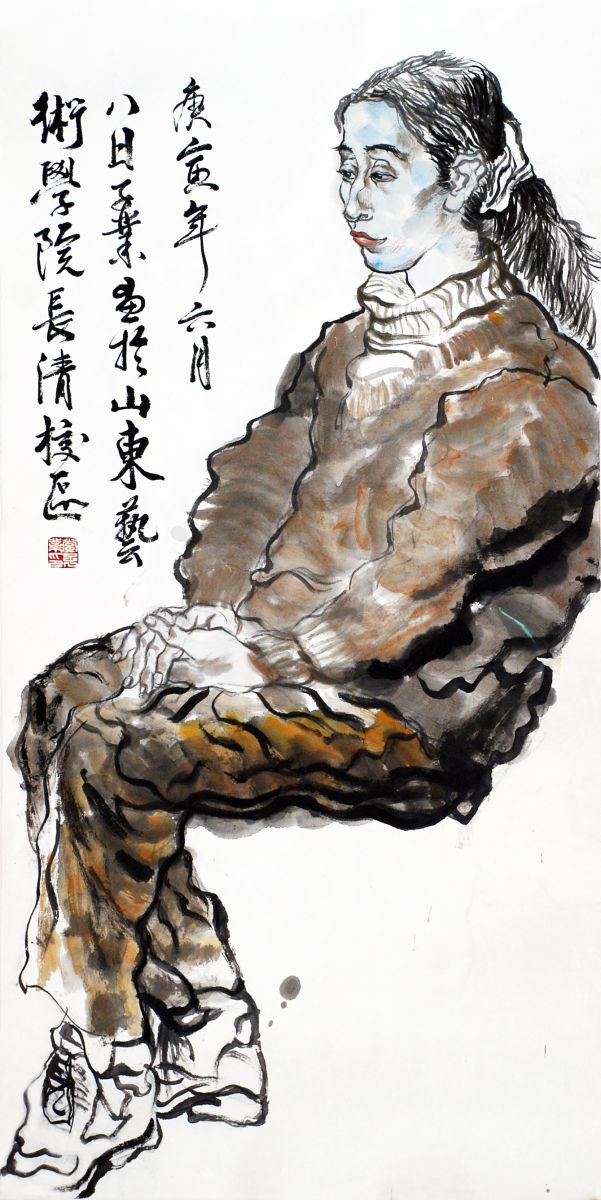 庚寅年六月
八日子葉画於山東藝
術學院長清校區